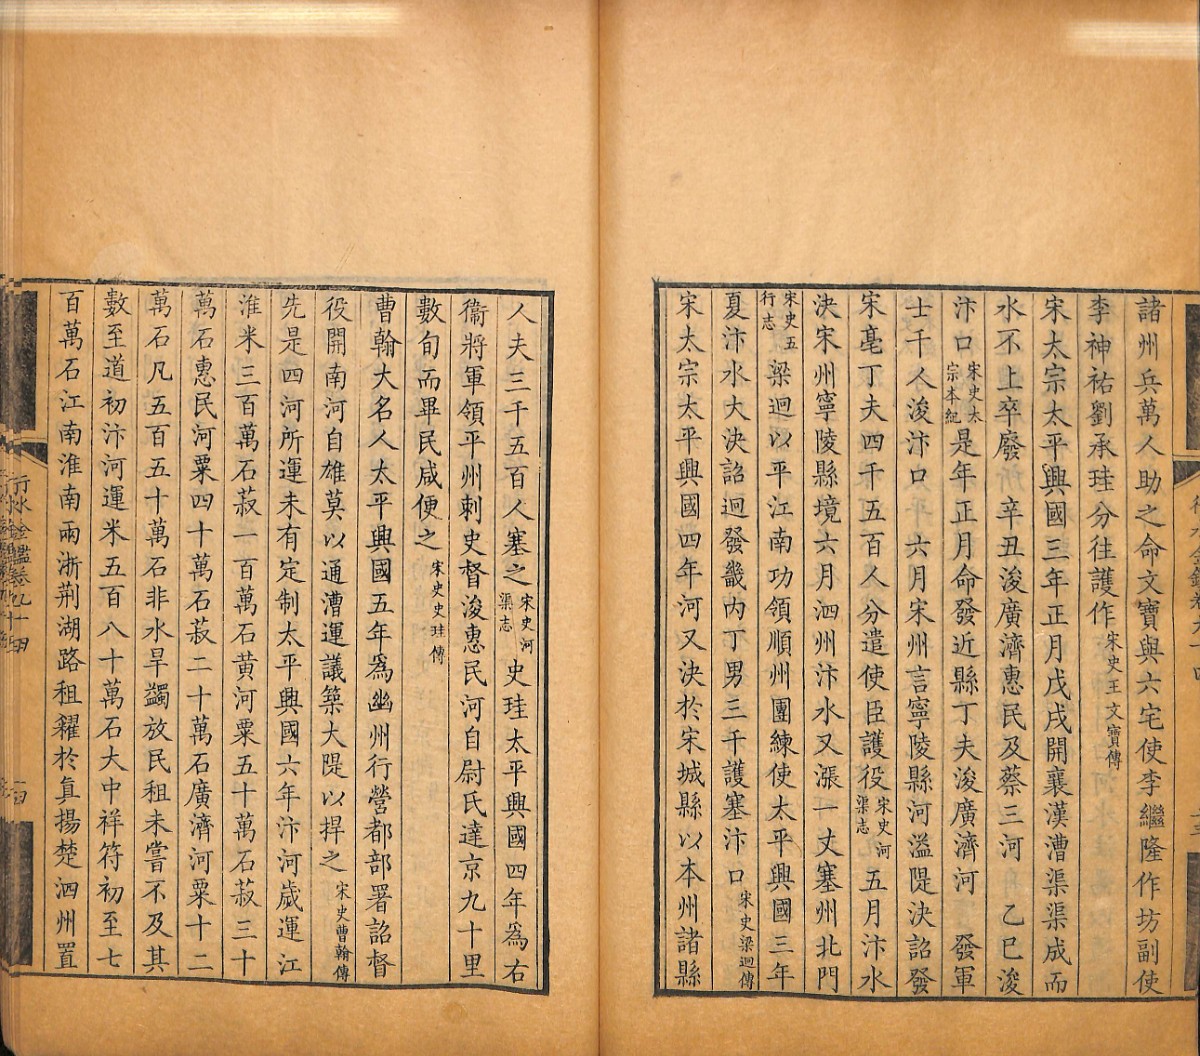 諸州兵萬人助之命文寶與六宅使李繼隆作坊副使
李神祐劉承珪分往護作宋史王文寶傳
宋太宗太平興國三年正月戊戌開襄漢漕渠渠成而
水不上卒廢所辛丑浚廣濟惠民及蔡三河　乙巳浚
汴口宋史太宗本紀是年正月命發近縣丁夫浚廣濟河　發軍
士千人浚汴口　六月宋州言寧陵縣河溢隄決詔發
宋亳丁夫四千五百人分遣使臣護役宋史河渠志五月汴水
決宋州寧陵縣境六月泗州汴水又漲一丈塞州北門
宋史五行志梁迥以平江南功領順州團練使太平興國三年
夏汴水大決詔迥發畿內丁男三千護塞汴口宋史梁迥傳
宋太宗太平興國四年河又決於宋城縣以本州諸縣
人夫三千五百人塞之宋史河渠志史珪太平興國四年為右
衞將軍領平州刺史督浚惠民河自尉氏達京九十里
數旬而畢民咸便之宋史史珪傳
曹翰大名人太平興國五年爲幽州行營都部署詔督
役開南河自雄莫以通漕運議築大隄以捍之宋史曹翰傳
先是四河所運未有定制太平興國六年汴河歲運江
淮米三百萬石菽一百萬石黃河粟五十萬石菽三十
萬石惠民河粟四十萬石菽二十萬石廣濟河粟十二
萬石凡五百五十萬石非水旱蠲放民租未嘗不及其
數至道初汴河運米五百八十萬石大中祥符初至七
百萬石江南淮南兩浙荆湖路租糴於眞揚楚泗州置
行水金鑑卷九十四